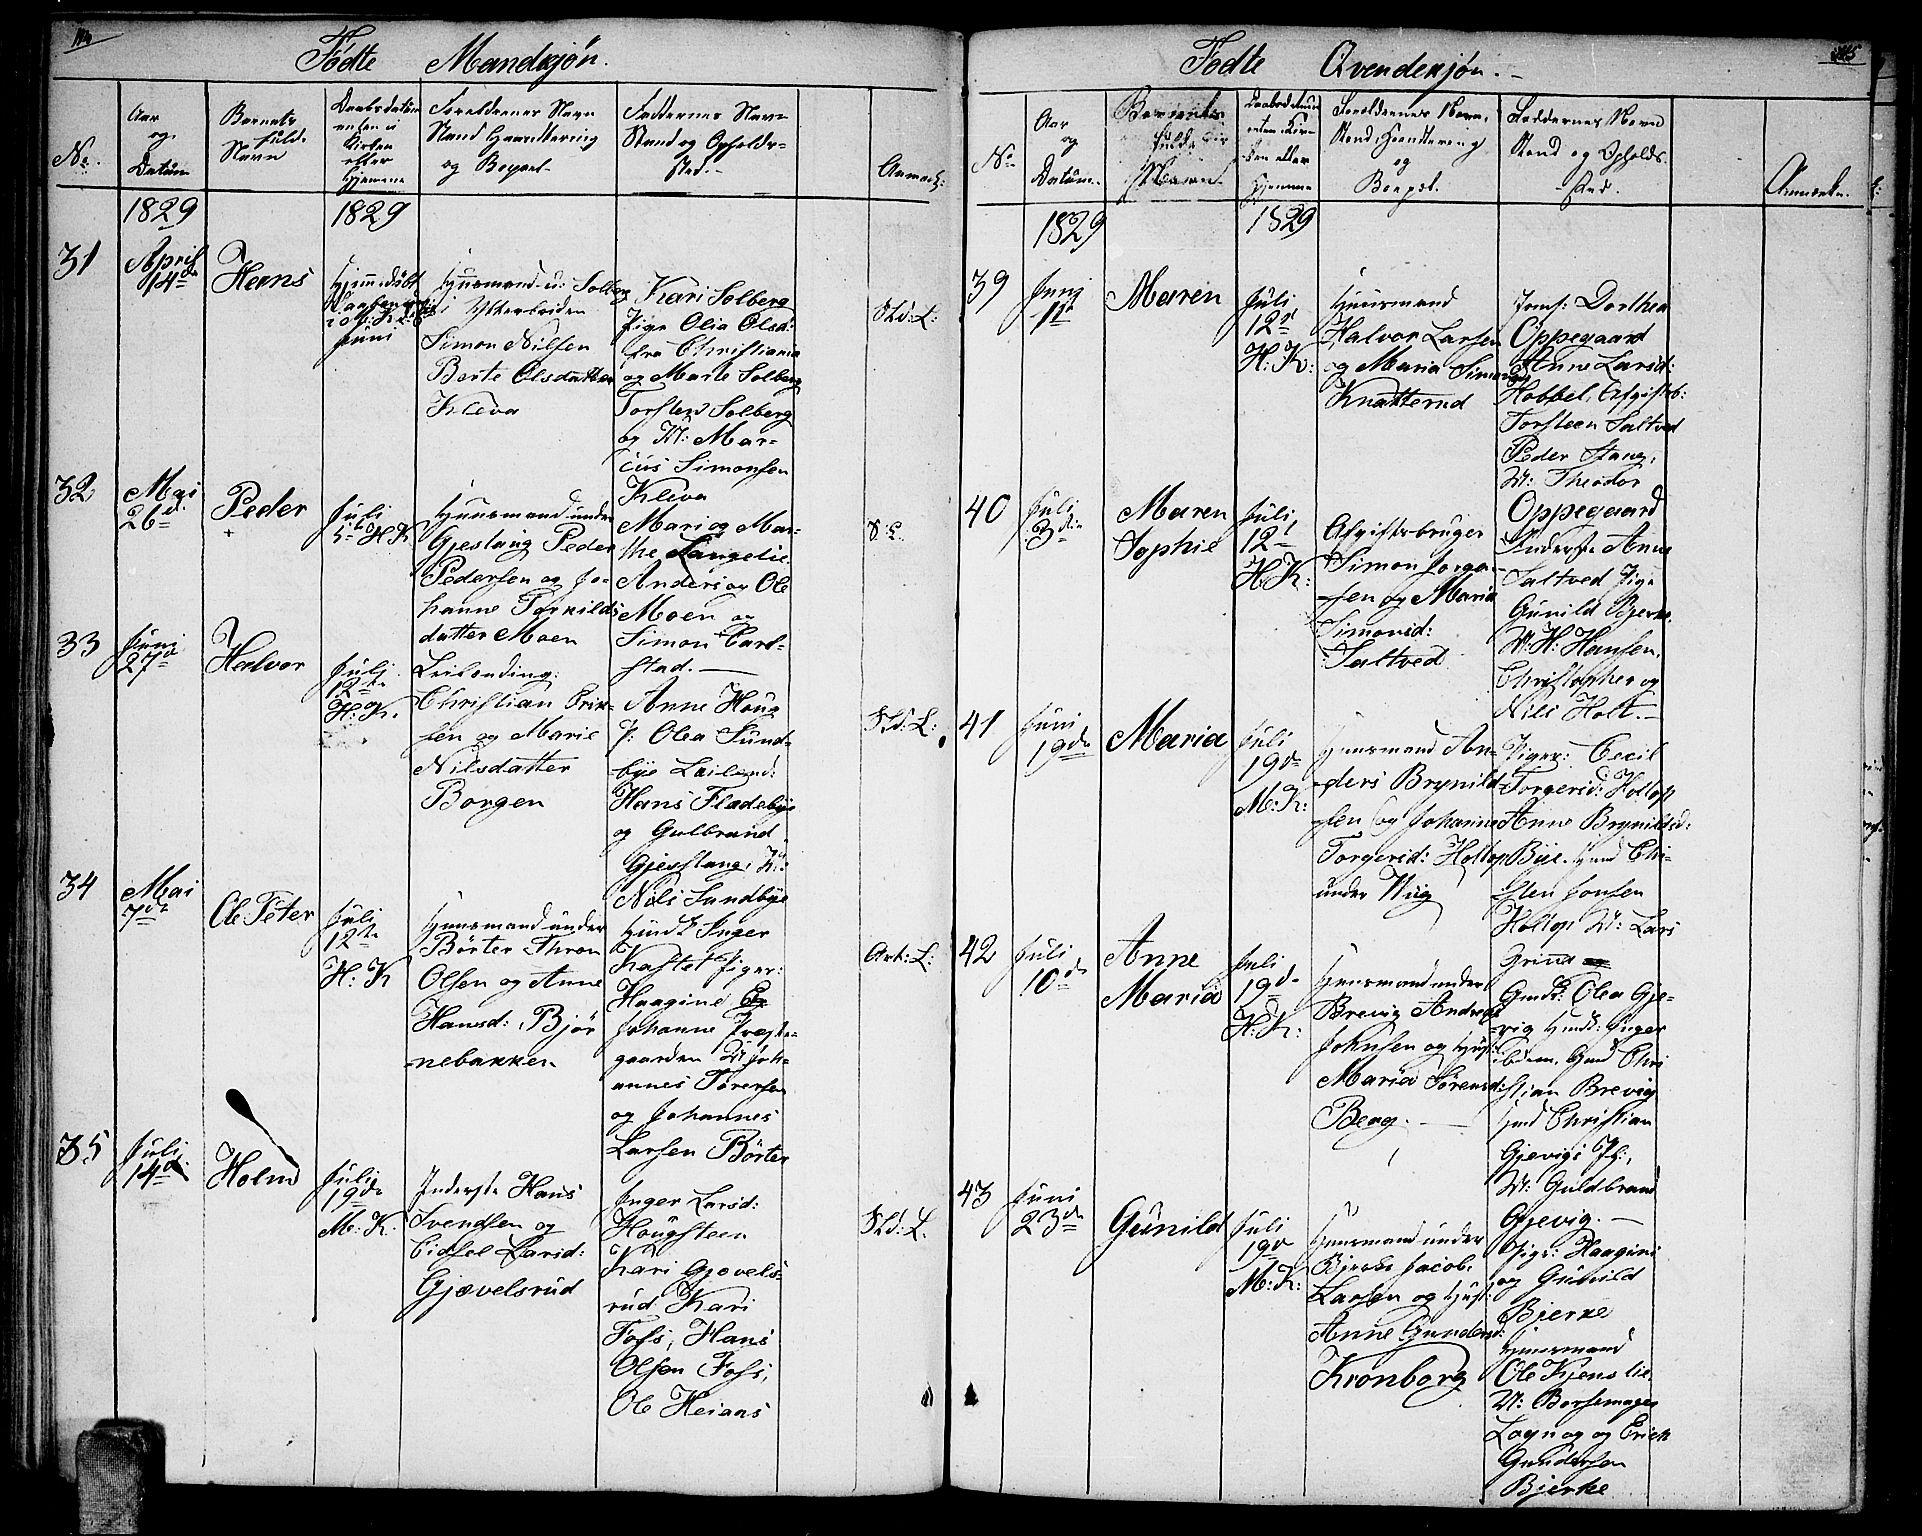 Födte Mandkjön.
No.
Aar
og
Datum
Barnets
fulde
Navn
Daabsdatum
enten i
Kirken
eller
Hjemme
Foreldrenes Navn
Stand Haandtering
og Bopæl
Faddernes Navn
Stand og Opholds-
sted.
Anmærk:
1829
1829
31
April
14de
Hans
Hjemmedöbt
Juni
Huusmand u: Solberg
i Ytterbeiden
Simon Nilsen
Berte Olsdatter
Kleva
Kari Solberg
Pige Olia Olsd:
fra Christiania
og Marte Solberg
Torsten Solberg
og U: Mar-
cus Simonsen
Kleva
Sld: L:
32
Mai
26d.
Peder
Juli
5te H K
Huusmand under
Gjestang Peder
Pedersen og Jo-
hanne Torkilds
datter Moen
Mari og Mar-
the Langelie
Anders og Ole
Moen og
Simon Carl-
stad.
S: L.
33
Juni
27de
Halvor
Juli
12te
H: K.
Leilending:
Christian Erik-
sen og Marie
Nilsdatter
Borgen
Anne Houg
P: Olea Sund-
bye Leilend:
Hans Fladebye
og Gulbrand
Gjesstang, U:
Nils Sundbye
Sld: L:
34
Mai
7de
Ole Peter
Juli
12te
H: K
Huusmand under
Börter Thron
Olsen og Anne
Hansd: Björ
-nebakken
Huusk: Inger
Kastet Piger:
Haagine
Johanne Præste-
gaarden U: Joh-
annes Torersen
og Johannes
Larsen Börter
Ark: L:
35
Juli
14de
Holm
Juli
19de
M: K.
Inderste Hans
Svendsen og
Eidsel Larsd:
Gjævelsrud
Inger Larsd:
Hougsteen
Kari Gjævels-
rud Kari
Foss, Hans
Olsen Foss,
Ole Heiaas
Sld: L.
Födte Qvendekjön.
No
Aar
og
Datum.
Barnets
fulde
Navn
Daabsdatum
enten Kir-
ken eller
Hjemme
Foreldrenes Navn,
Stand Haandtering
og
Bopæl.
Faddernes Navn
Stand og Opholds-
sted.
Anmærk.
1829
1829
39
Juni
11te
Maren
Juli
12te
H: K:
Huusmand
Halvor Larsen
og Maria Simonsd
Knatterud
Jomf: Dorthea
Oppegaard
Anne Larsd:
Hobbel, Afgiftsb:
Torsteen Saltved
Peder Stang,
U: Theodor
Oppegaard
40
Juli
3die
Maren
Sophie
Juli
12te
H: K:
Afgiftsbruger
Simon Jorga-
-sen og Maria
Simonsd:
Saltved
Inderste Anne
Saltved Pige
Gunild Bjerke
U: H: Hansen,
Christopher og
Nils Holt.
41
Juni
19de
Maria
Juli
19de
M: K:
Huusmand An-
-ders Brynild-
sen og Johanne
Torgersd: Holtop
under Wiig
Piger: Cecil
Torgersd: Holtop
Anne Brynildsd:
Bye. Huusmd Chri-
sten Jonsen
Holtop U: Lars
Grina
42
Juli
10de
Anne
Maria
Juli
19de
H: K:
Huusmand under
Brevig Andreas
Johnsen og Hust:
Maria Sörensd:
Berg.
Gmdk: Olea Gje-
-vig Hmdk: Inger
Gmd Chri
stian Brevig
Hmd Christian
Gjevigs Pl:,
U: Guldbrand
Gjevig.
43
Juni
23de
Gunild
Juli
19de
M: K:
Huusmand under
Bjerke Jacob
Larsen og Hust:
Anne Gundersd:
Kronborg
Piger: Haagine
og Gunild
Bjerke
Huusmand
Ole Kjenslie
U: Borsemager
Logn og Erick
Gundersen
Bjerke